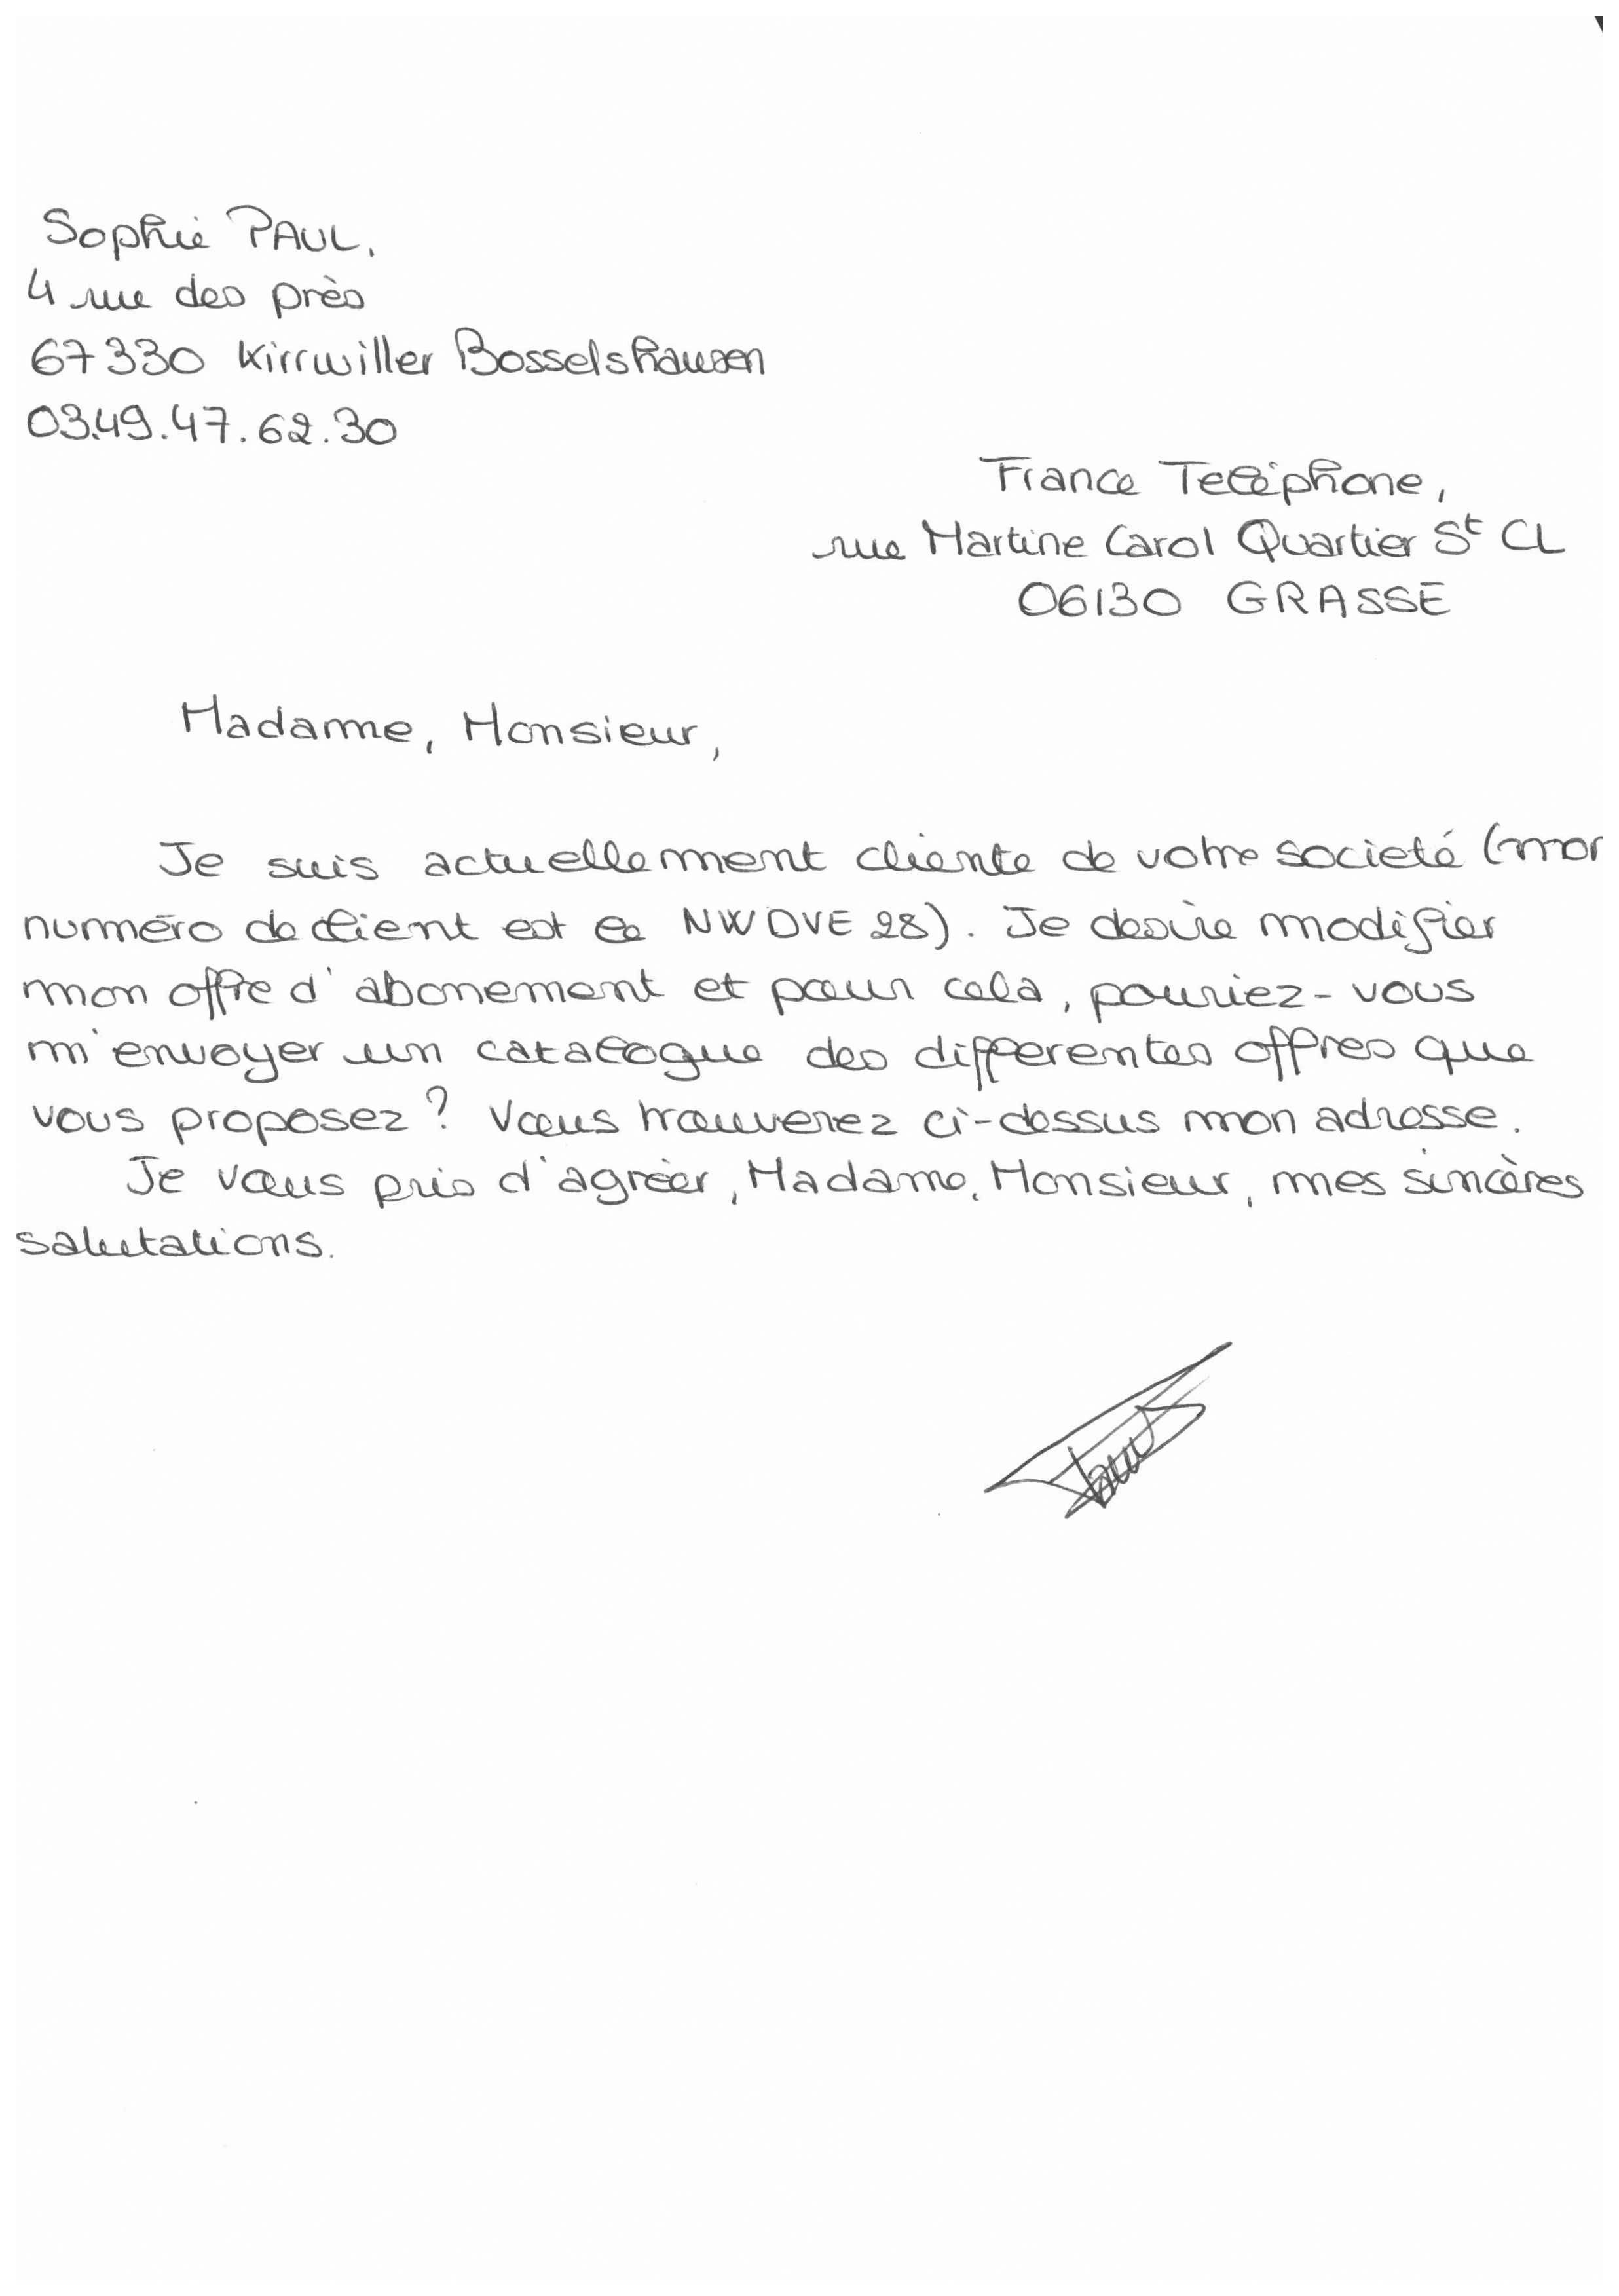 Sophie PAUL,
4 rue des près
67330 Kirrwiller Bosselshausen
03.49.47.62.30
France Teléphone,
rue Martine Carol Quartier St CL
06130 GRASSE
Madame, Monsieur,
Je suis actuellement cliente de votre societé (mon
numéro de client est le NWDVE28). Je desire modifier
mon offre d'abonement et pour cela, pouriez-vous
m'envoyer un catalogue des differentes offres que
vous proposez ? Vous trouverez ci-dessus mon adresse.
Je vous pris d'agréer, Madame, Monsieur, mes sincères
salutations.